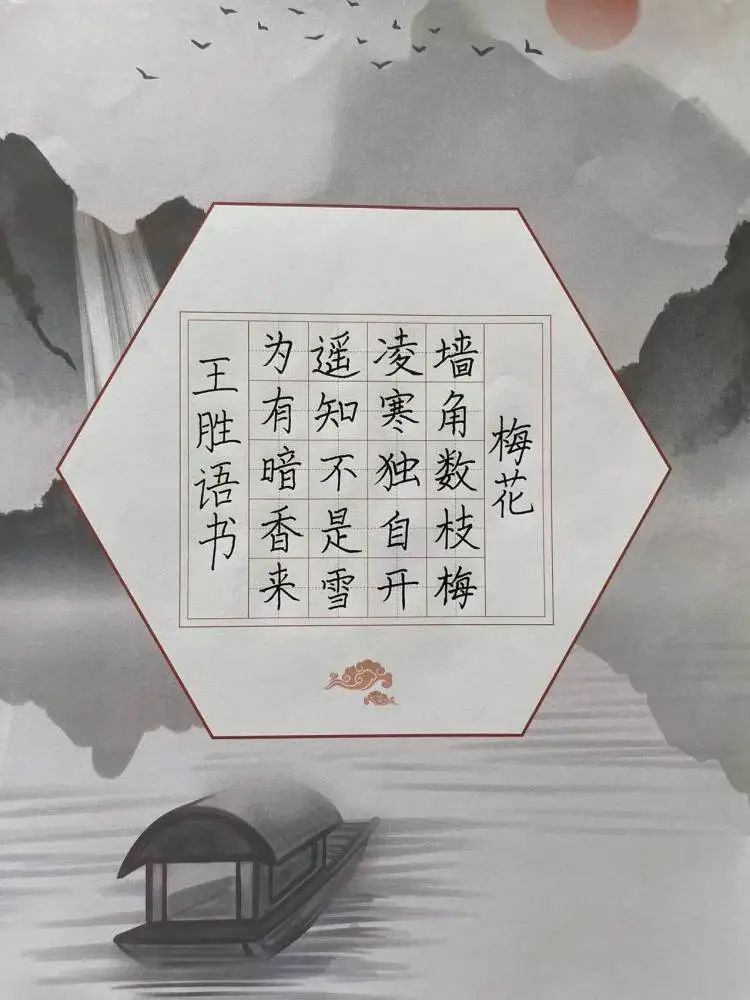 梅花
墙角数枝梅
凌寒独自开
遥知不是雪
为有暗香来
王胜语书